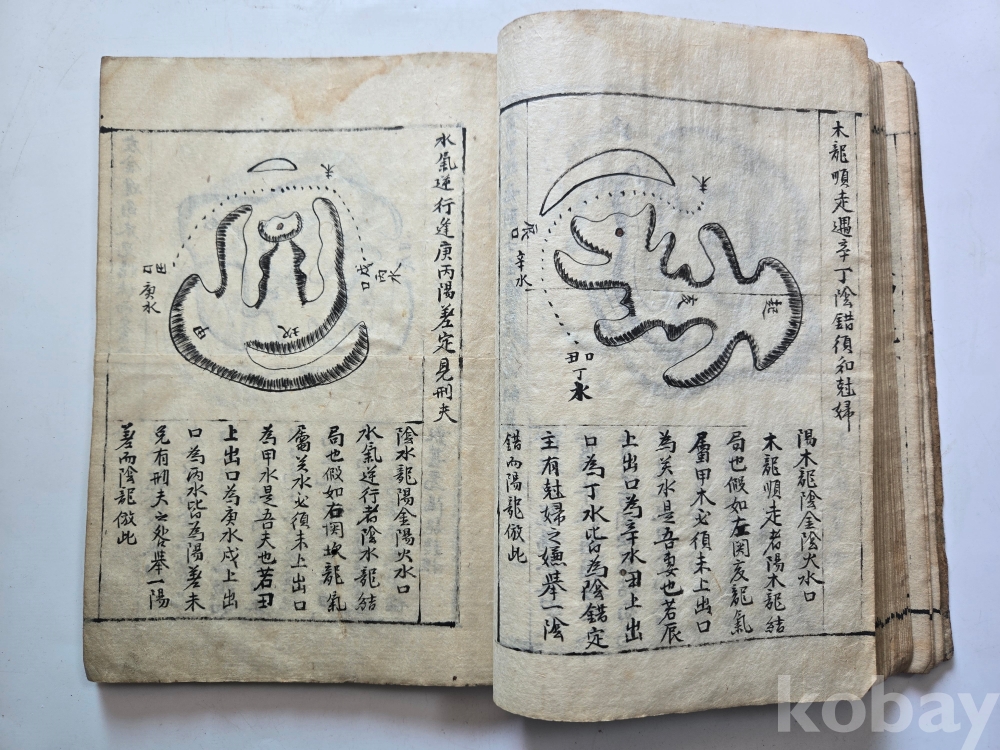 木龍順走遇辛丁陰錯須和尅婦
未
辰口
辛水
亥
起
丑口
丁水
陽木龍陰金陰火水口
木龍順走者陽木龍結
局也假如左関亥龍氣
屬甲木必須未上出口
為癸水是吾妻也若辰
上出口為辛水丑上出
口為丁水皆為陰錯定
主有尅婦之嫌舉一陰
錯而陽龍倣此
水氣逆行逢庚丙陽差定見刑夫
未
丑口
庚水
戌口
丙水
坎
陰水龍陽金陽火水口
水氣逆行者陰水龍結
局也假如右関坎龍氣
屬癸水必須未上出口
為甲水是吾夫也若丑
上出口為庚水戌上出
口為丙水皆為陽差未
免有刑夫之咎舉一陽
差而陰龍倣此
kobay